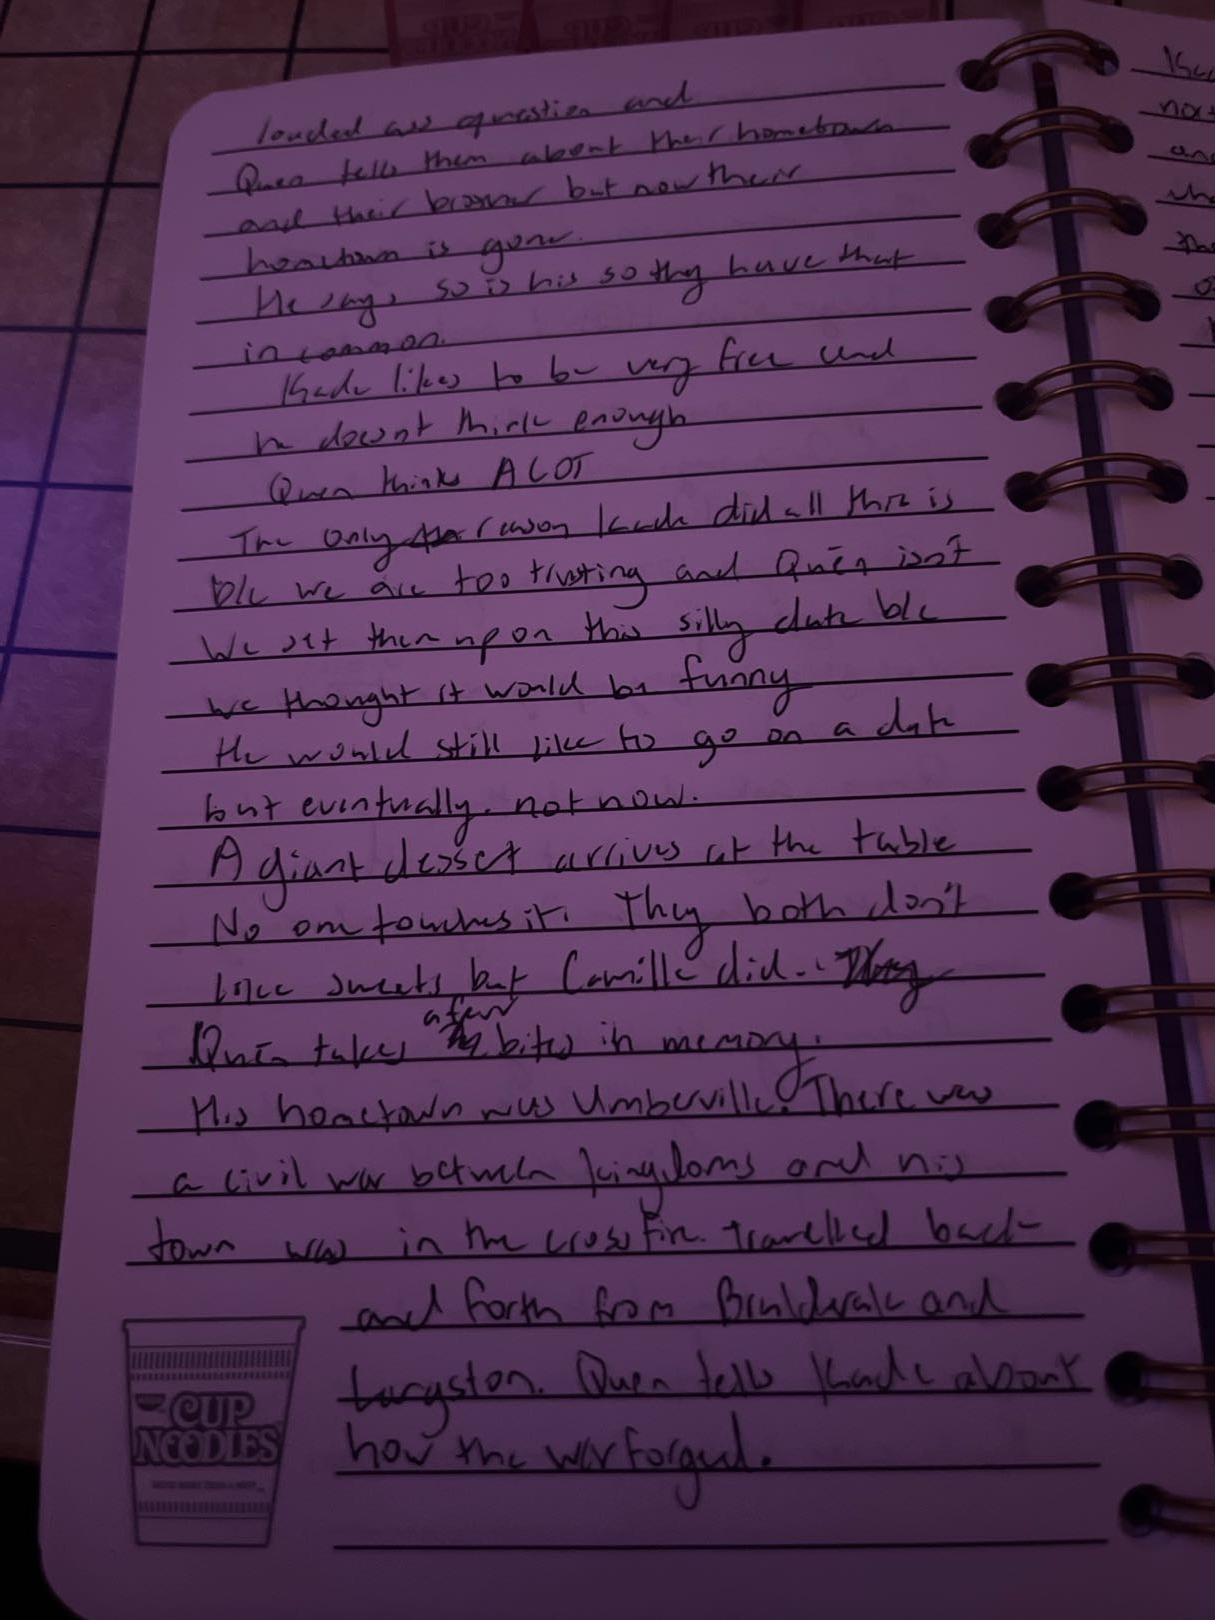 loaded ass question and
Quen tells them about their hometown
and their but now their
hometown is gone.
He says so is his so they have that
in common.
Kade likes to be very free and
he doesnt think enough
Quen thinks A LOT
The only reason Kade did all this is
b/c we are too trusting and Quēn isn't
We set them up on this silly date b/c
we thought it would be funny
He would still like to go on a date
but eventually. not now.
A giant dessert arrives at the table
No one touches it. They both don't
like sweets but Camille did..
Quēn takes a few bites in memory.
His hometown was Umberville. There was
a civil war between kingdoms and his
town was in the crossfire. Travelled back
and forth from and
Quen tells Kade about
how the warforged.
CUP
NOODLES